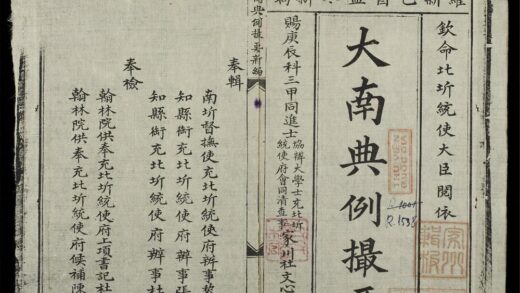 欽命北圻統使大臣閱依
大南典例撮
賜庚辰科三甲同進士
協辦大學士充北圻
統使府會同清查事
家川社文心
R.1538
典例撮要新編
奉輯
南圻督撫使充北圻統使府辦事
知縣銜充北圻統使府辦事張
知縣銜充北圻統使府辦事
奉檢
翰林院供奉充北圻統使府上項書記杜
翰林院供奉充北圻統使府候補陳